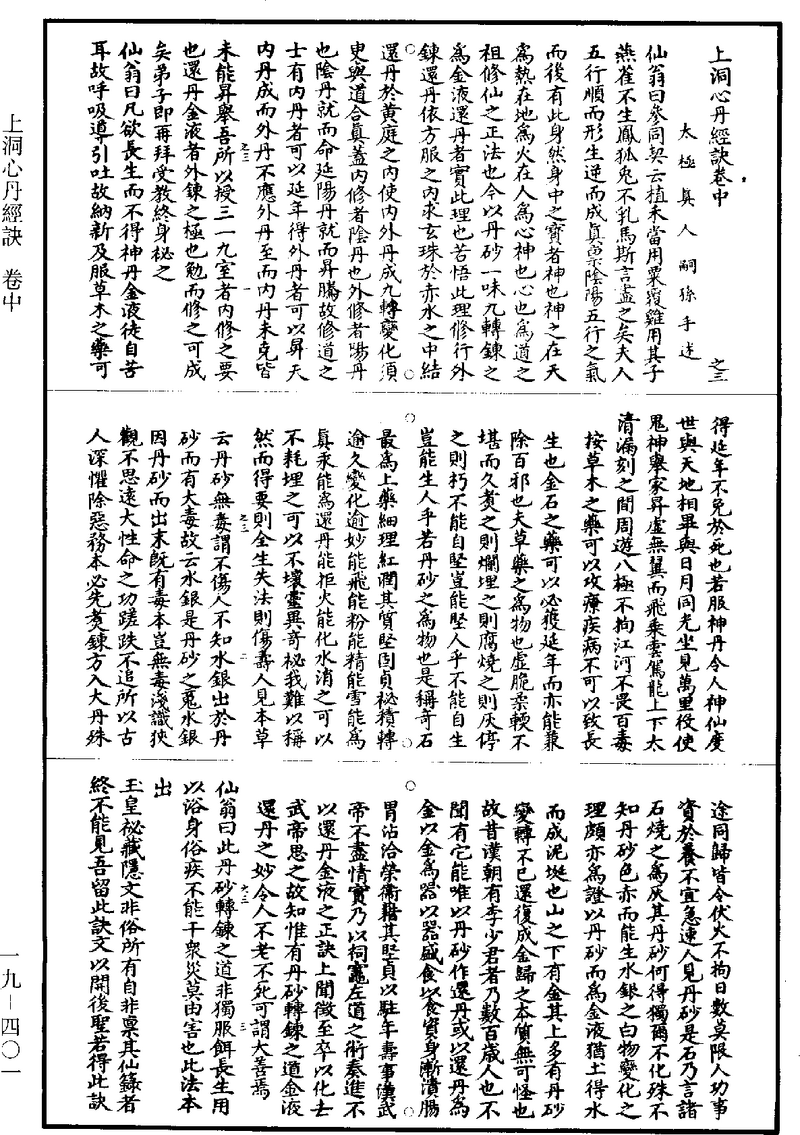 上洞心丹經訣 卷中
一九-四〇一
上洞心丹經訣卷中
之三
太極眞人嗣孫手述
仙翁曰參同契云植禾當用粟覆雞用其子
燕雀不生鳳狐兔不乳馬斯言盡之矣夫人
五行順而形生逆而成眞禀陰陽五行之氣
而後有此身然身中之寶者神也神之在天
爲熱在地爲火在人爲心神也心也爲道之
祖修仙之正法也今以丹砂一味九轉鍊之
爲金液還丹者實此理也苦悟此理修行外
鍊還丹依方服之内求玄珠於赤水之中結
還丹於黄庭之内使内外丹成九轉變化須
臾與道合眞蓋内修者陰丹也外修者陽丹
也陰丹就而命延陽丹就而昇騰故修道之
士有内丹者可以延年得外丹者可以昇天
内丹成而外丹不應外丹至而内丹未克皆
之三
一
未能昇舉吾所以授三一九室者内修之要
也還丹金液者外鍊之極也勉而修之可成
矣弟子即再拜受教終身秘之
仙翁曰凡欲長生而不得神丹金液徒自苦
耳故呼吸導引吐故納新及服草木之藥可
得延年不免於死也若服神丹令人神仙度
世與天地相畢與日月同光坐見萬里役使
鬼神舉家昇虛無翼而飛乘雲駕龍上下太
清漏刻之間周遊八極不拘江河不畏百毒
按草木之藥可以攻療疾病不可以致長
生也金石之藥可以必獲延年而亦能兼
除百邪也夫草藥之爲物也虛脆柔輭不
堪而久煑之則爛埋之則腐燒之則灰停
之則朽不能自堅豈能堅人乎不能自生
豈能生人乎若丹砂之爲物也是稱奇石
最爲上藥細理紅潤其質堅固貞祕積轉
逾久變化逾妙能飛能粉能精能雪能爲
眞汞能爲還丹能拒火能化水消之可以
不耗埋之可以不壞靈異奇祕我難以稱
然而得要則全生失法則傷壽人見本草
之三
二
云丹砂無毒謂不傷人不知水銀出於丹
砂而有大毒故云水銀是丹砂之䰟水銀
因丹砂而出末旣有毒本豈無毒淺識狹
觀不思遠大性命之功蹉跌不追所以古
人深懼除惡務本必先煑鍊方入大丹殊
途同歸皆令伏火不拘日數莫限人功事
資於養不宜急速人見丹砂是石乃言諸
石燒之爲灰其丹砂何得獨爾不化殊不
知丹砂色赤而能生水銀之白物變化之
理頗亦爲證以丹砂而爲金液猶土得水
而成泥埏也山之下有金其上多有丹砂
變轉不已還復成金歸之本質無可怪也
故昔漢朝有李少君者乃數百歲人也不
聞有它能唯以丹砂作還丹或以還丹爲
金以金爲器以器盛食以食資身漸漬腸
胃沾洽榮衞藉其堅貞以駐年壽事漢武
帝不盡情實乃以祠竈左道之術奏進不
以還丹金液之正訣上聞徵至卒以化去
武帝思之故知惟有丹砂轉鍊之道金液
還丹之妙令人不老不死可謂大善焉
之三
三
仙翁曰此丹砂轉鍊之道非獨服餌長生用
以浴身俗疾不能干衆災莫由害也此法本
出
玉皇祕藏隱文非俗所有自非禀其仙籙者
終不能見吾留此訣文以開後聖若得此訣